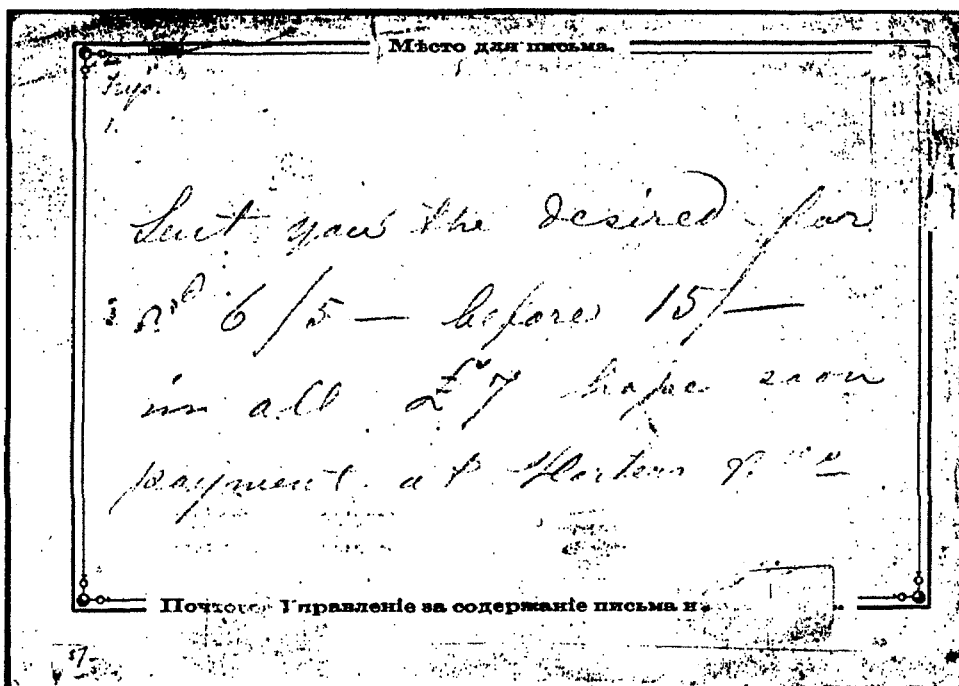 Мѣсто для письма.
1.
Sent you the desired for
6/5 — before 15/—
in all £ 7 hope soon
payment at
Управленіе за содержаніе письма н